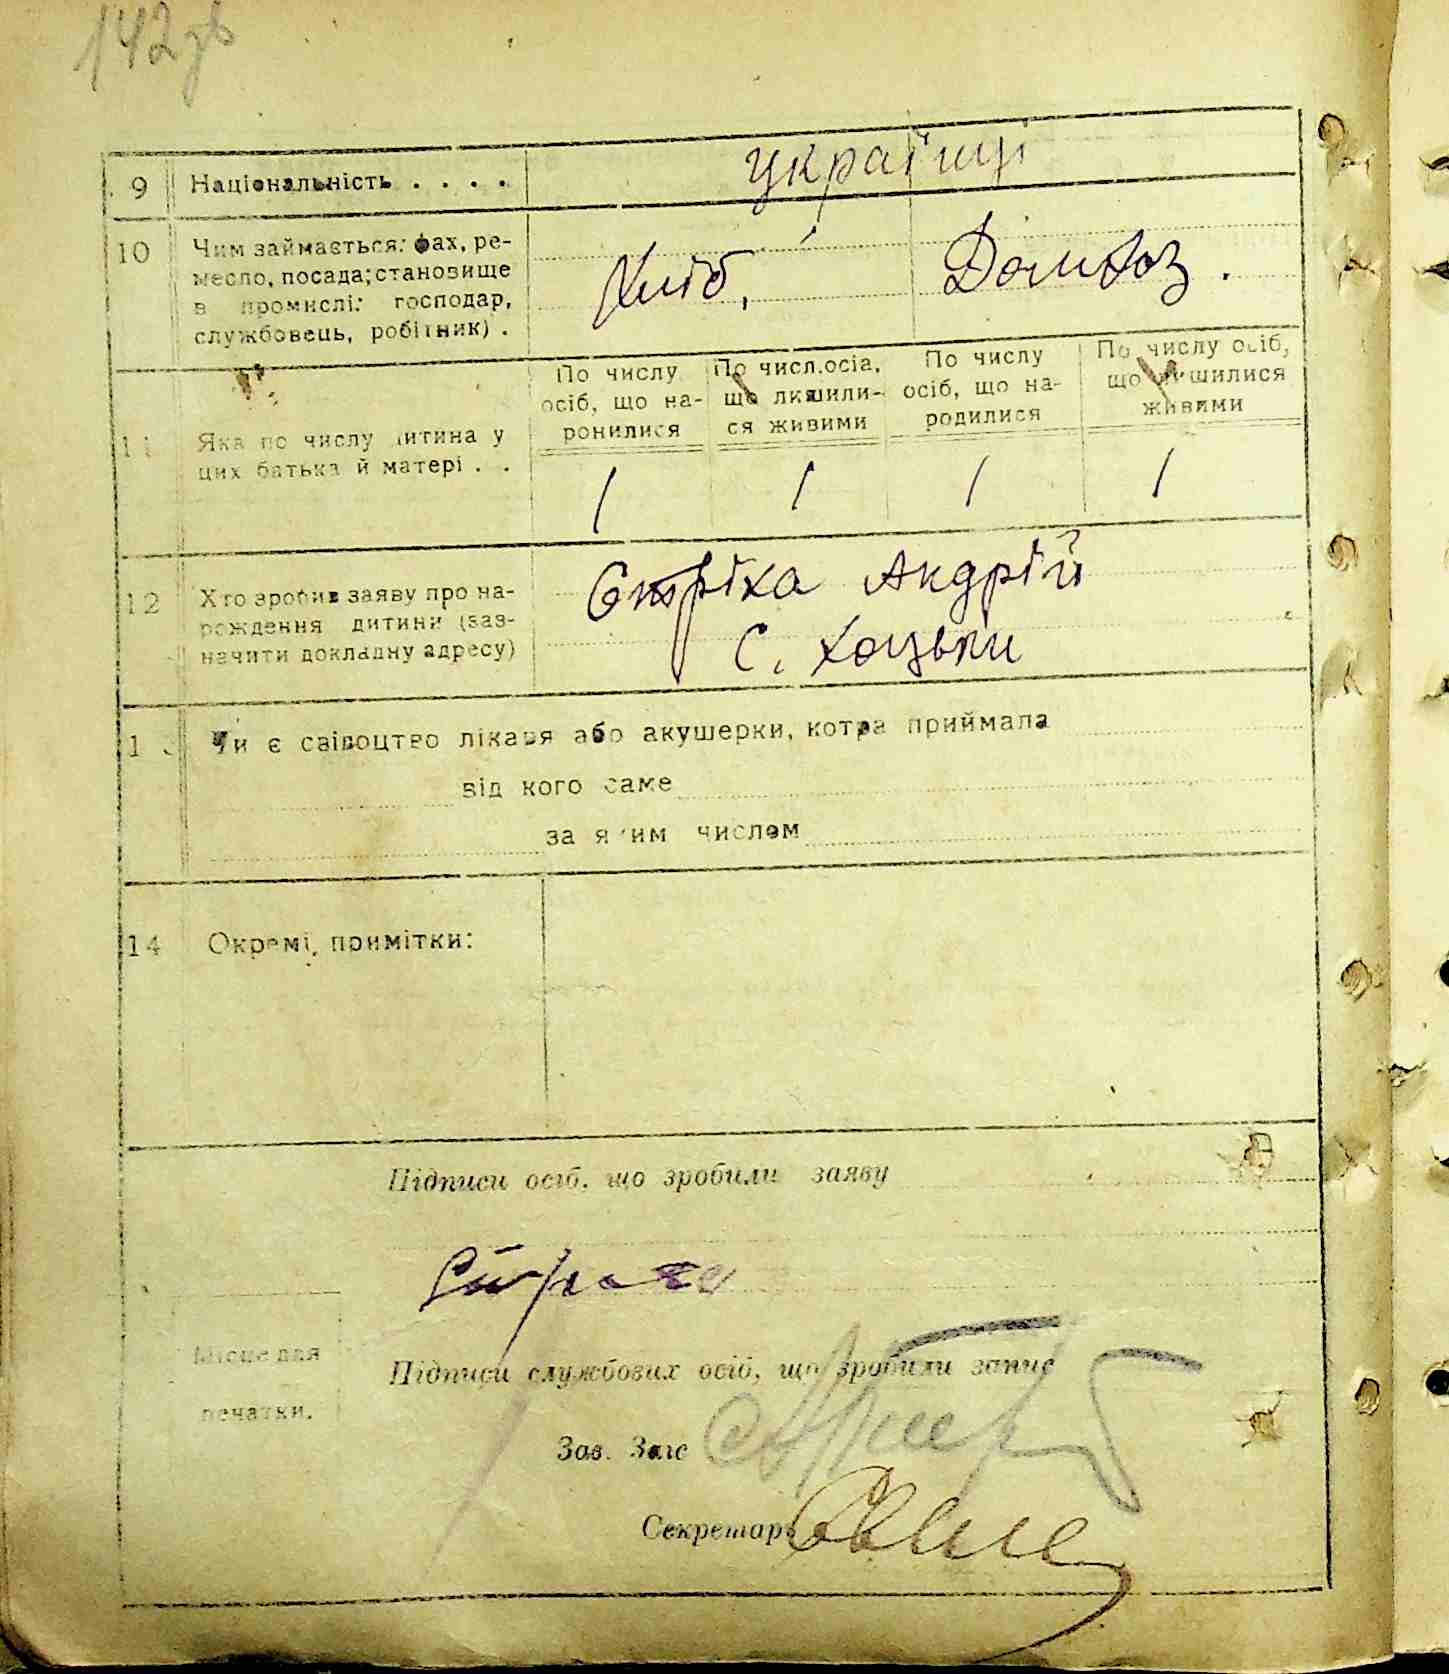 142 зв
9 Національність . . . . українці
10 Чим займається: фах, ре-
месло, посада; становище
в промислі: господар,
службовець, робітник) .
Хліб, Домгоз.
11 Яка по числу дитина у
цих батька й матері . .
По числу
осіб, що на-
ронилися
По числ.осіа,
що лишили-
ся живими
По числу
осіб, що на-
родилися
По числу осіб,
що лишилися
живими
1 1 1 1
12 Хто зробив заяву про на-
рождення дитини (заз-
начити докладну адресу)
Стріха Андрій
с. Хоцьки
13 Чи є свідоцтво лікаря або акушерки, котра приймала
від кого саме
за яким числом
14 Окремі примітки:
Підписи осіб, що зробили заяву
Стріха
Місце для
печатки.
Підписи службових осіб, що зробили запис
Зав. Загс
Секретарь